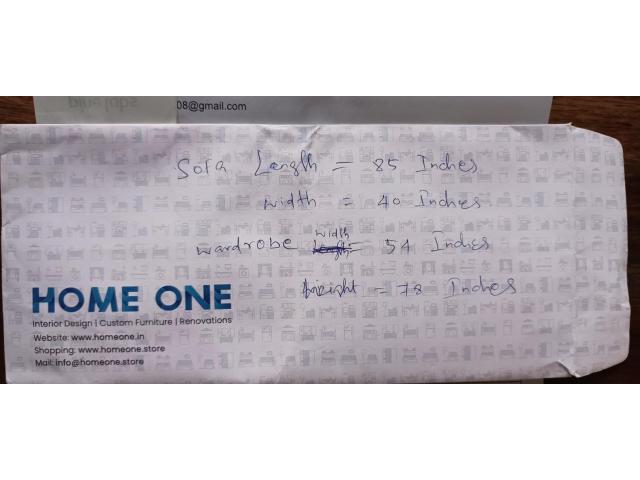 pine labs
08@gmail.com
Sofa Length = 85 Inches
width = 40 Inches
width
wardrobe Length = 54 Inches
height = 78 Inches
HOME ONE
Interior Design | Custom Furniture | Renovations
Website: www.homeone.in
Shopping: www.homeone.store
Mail: info@homeone.store